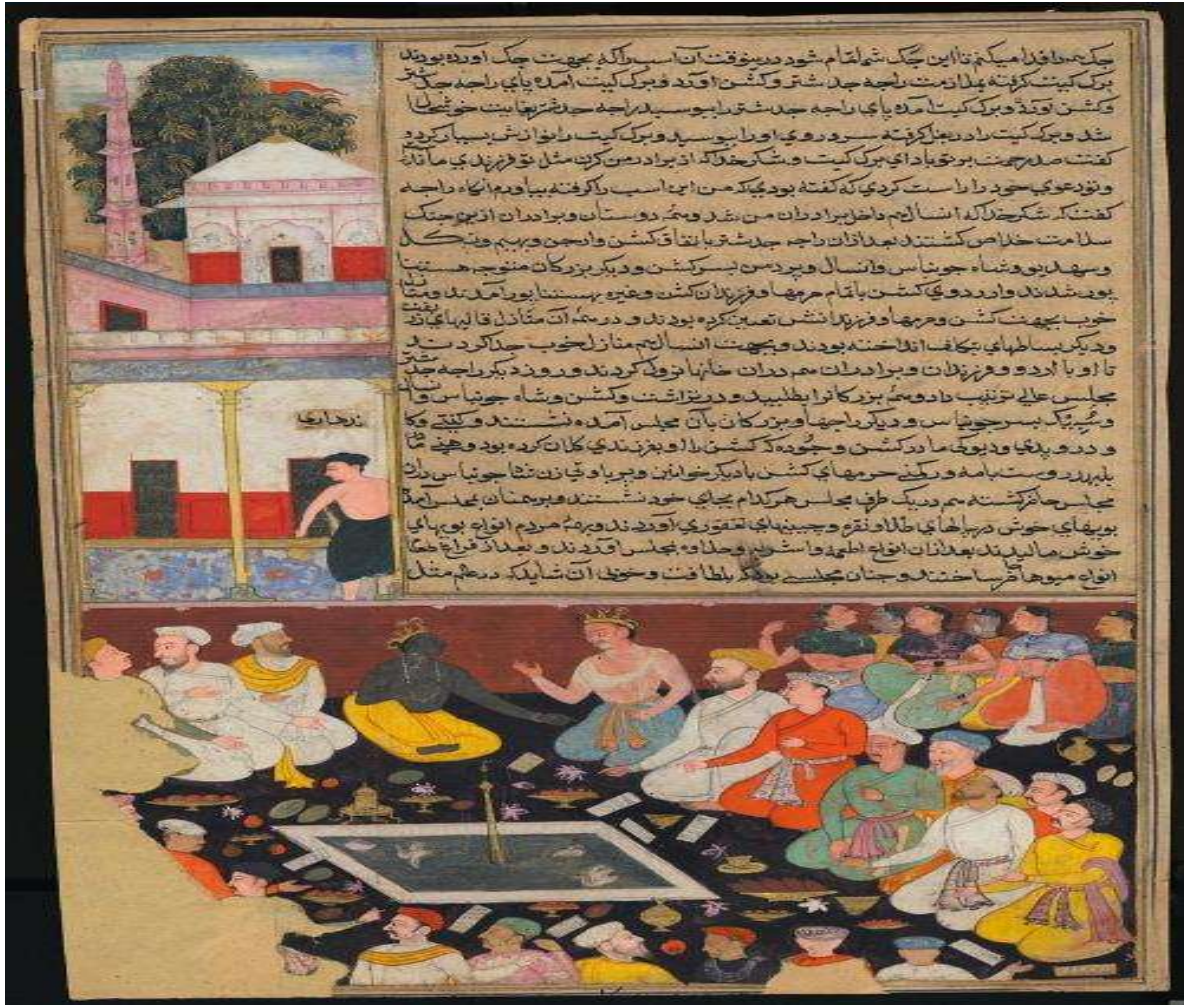 جک همه را فدا میکنم تا این جک شما تمام شود درینوقت آن اسب را که بجهت جک آورده بودند
برک کیت گرفته بملازمت راجه جدشتر و کشن آورد و برک کیت آمده پای راجه جدشتر
و کشن آورد و برک کیت آمده پای راجه جدشتر را بوسید راجه جدشتر بغایت خوشحال
شد و برک کیت را در بغل گرفته سر و روی او را بوسید و برک کیت را نوازش بسیار کرده
گفت صد رحمت بر تو باد ای برک کیت و شکر خدا که از برادر من کرن مثل تو فرزندی مانده
و تو دعوی خود را راست کردی که گفته بودی که من این اسب را گرفته بیاورم آنگاه راجه
گفت که شکر خدا که انسال هم داخل برادران من شد و همه دوستان و برادران ازین جنک
سلامت خلاص گشتند بعد ازان راجه جدشتر با تفاق کشن و ارجن و بهیم و نکل
و سهدیو و شاه جوناس و انسال و پردمن پسر کشن و دیگر بزرگان متوجه هستنا
پور شدند و اردوی کشن با تمام حرمها و فرزندان کشن و غیره بهستناپور آمدند و منازل
خوب بجهت کشن و حرمها و فرزندانش تعین کرده بودند و در همه آن منازل قالیهای
و دیگر بساطهای بتکلف انداخته بودند و بجهت انسال هم منازل خوب جدا کردند
تا او با اردو و فرزندان و برادران هم دران خانها نزول کردند و روز دیگر راجه جدشتر
مجلس عالی ترتیب داد و همه بزرگانرا بطلبید و کشن و شاه جوناس و انسال
پسر جوناس و دیگر راجها و بزرگان بآن مجلس آمده نشستند و
و درو پدی و دیوکی مادر کشن و جسوده که کشن را بفرزندی کلان کرده بود و
و رکمنی حرمهای کشن با دیگر خواتین زن شاه جوناس دران
مجلس حاضر گشته هم در یک طرف مجلس هر کدام بجای خود نشستند و برهمنان بمجلس آمده
بویهای خوش در جامهای طلا و نقره و چینیهای فغفوری آوردند و همه مردم انواع بویهای
خوش مالیدند بعد ازان انواع اطعمه و اشربه و حلاوه بمجلس آوردند و بعد از فراغ طعام
انواع میوها حاضر ساختند و چنان مجلسی بود که بلطافت و خوبی آن شاید که در عالم مثل